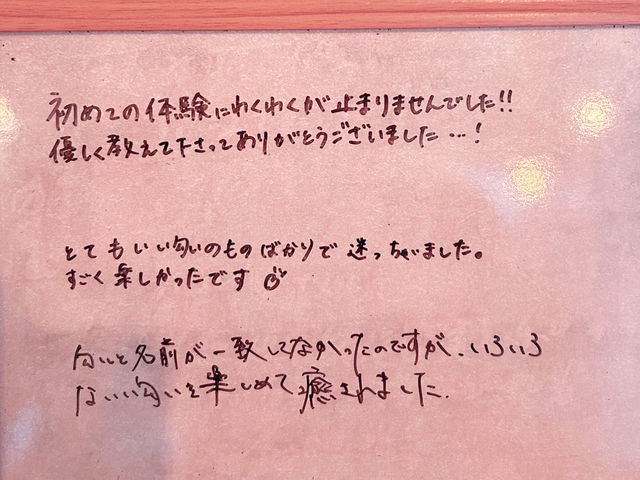 初めての体験にわくわくが止まりませんでした!!
優しく教えて下さってありがとうございました…!
とてもいい匂いのものばかりで迷っちゃいました。
すごく楽しかったです
匂いと名前が一致してなかったのですが、いろいろ
ないい匂いを楽しめて癒されました.